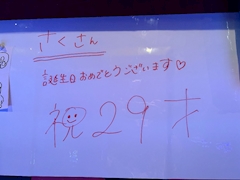 さくさん
誕生日おめでとうございます♡
祝29才